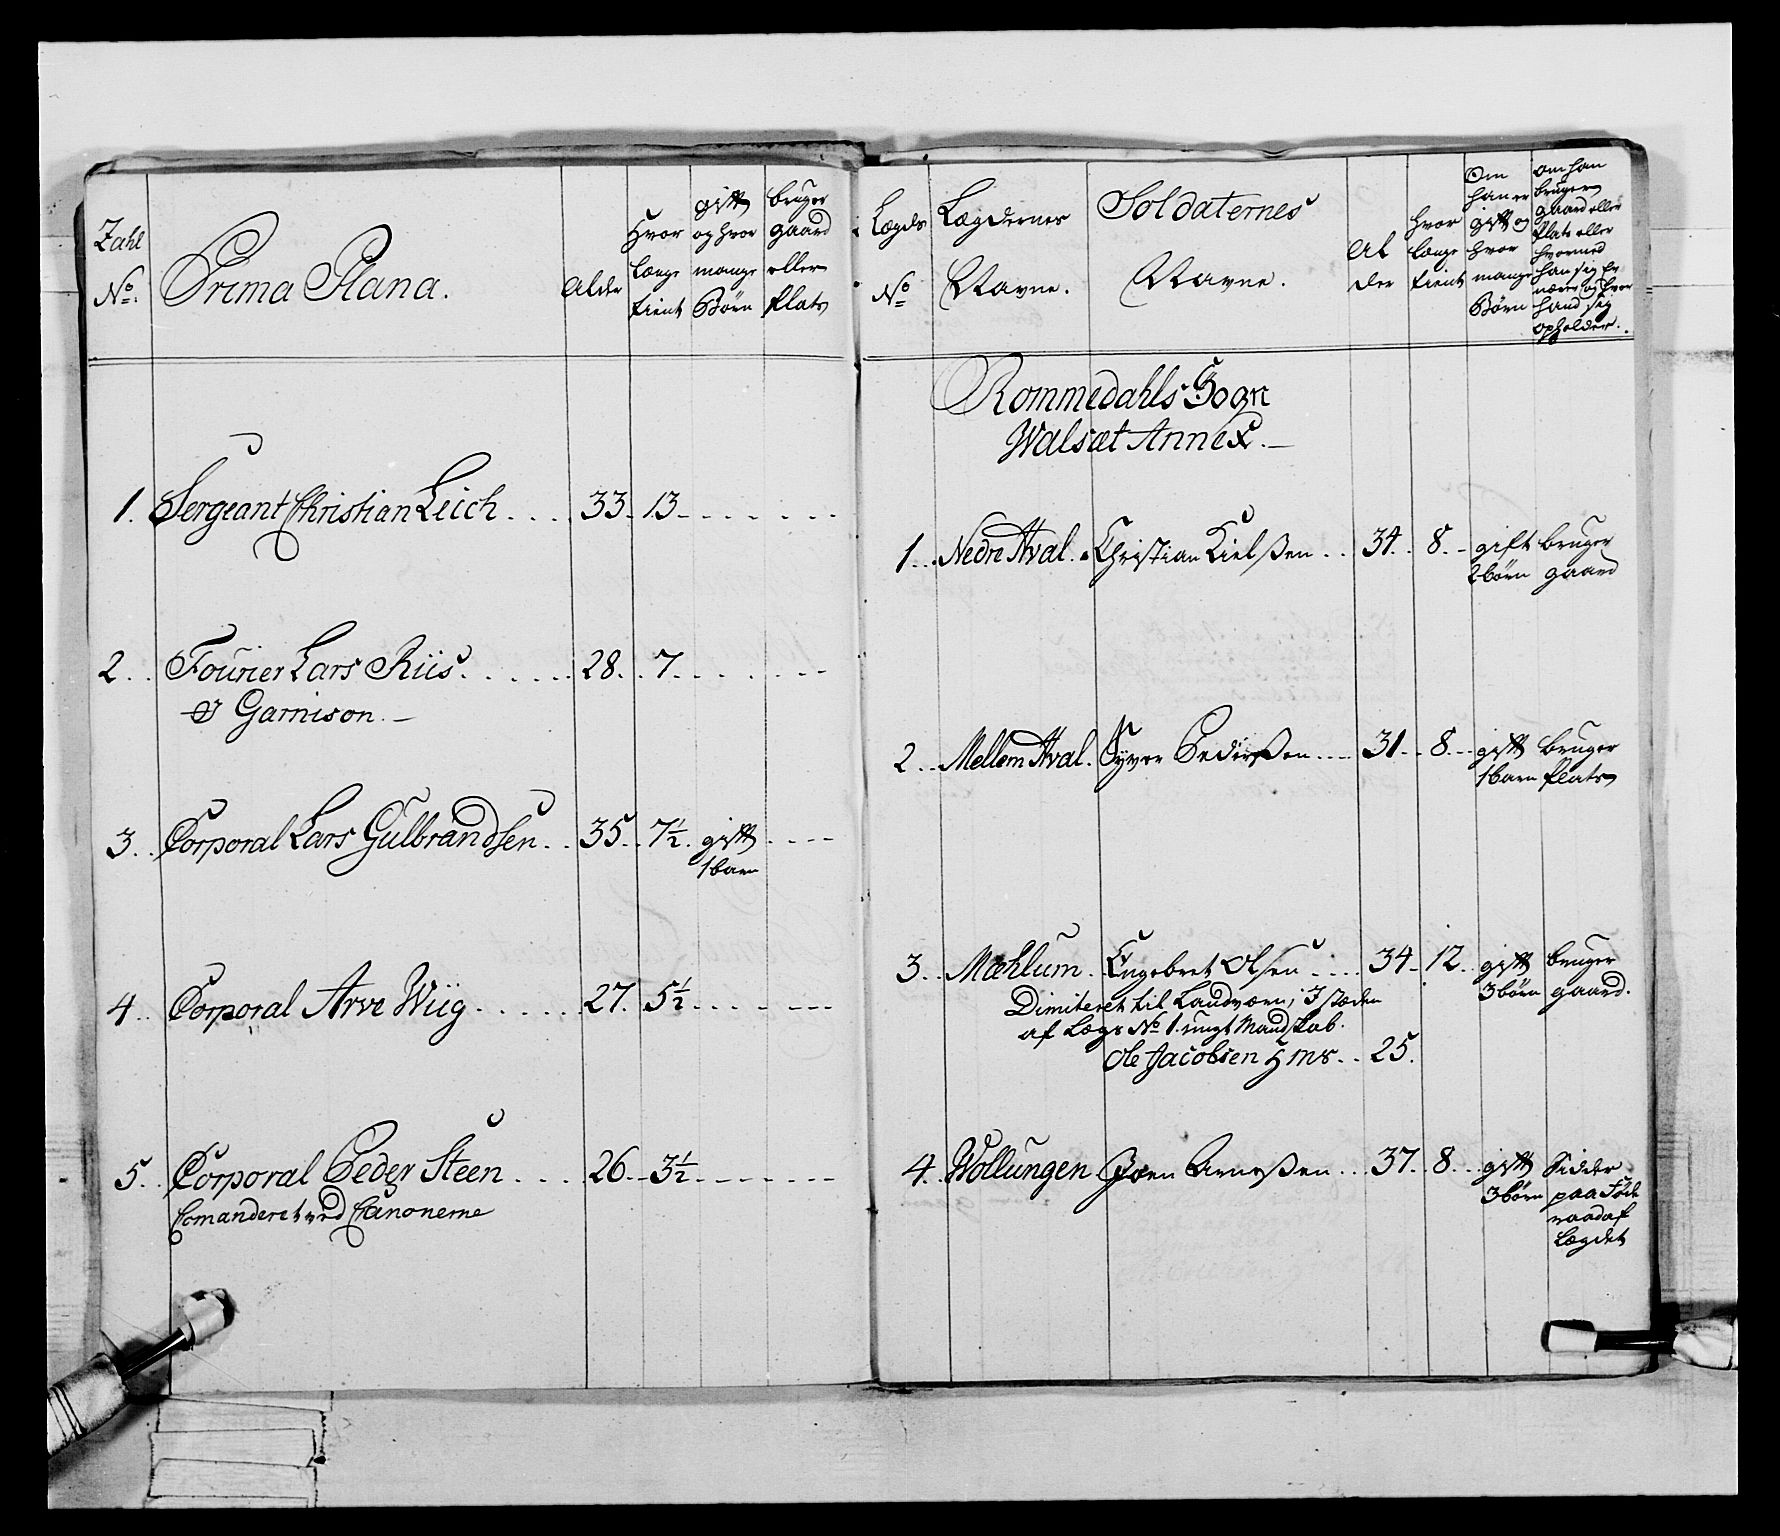 Zahl
No.
Prima Plana.
Alder
Hvor
længe
tient
gift
og hvor
mange
Børn
bruger
gaard
eller
plats
1. Sergeant Christian Leich . . . 33. 13. - - - - - -
2. . Fourier Lars Riis . . . . . . 28. . 7. - - - - -
Garnison. –
3. . Corporal Lars Gulbrandsen . . 35. . 7½. gift . - - -
1 barn
4. . Corporal Arve Wiig . . . . . . 27. 5½ - - - - - -
5. . Corporal Peder Steen . . . . 26. . 3½ - - - - - -
Comanderet ved Canonerne
Lægds
No
Lægdernes
Navne.
Soldaternes
Navne.
Al
der
hvor
længe
tient
Om
han er
gift og
hvor
mange
Børn
om han
bruger
gaard eller
plats eller
hvormed
han sig er
nærer og hvor
hand sig
opholder.
Rommedahls Sogn
Walsæt Annex. –
1. . Nedre Aval. Christian Kielsen . . 34. . 8. - gift bruger
2 børn gaard
2. . Mellem Aval. Syver Pedersen . . . 31. . 8. - gift bruger
1 barn plats
3. . Mæhlum. Engebret Olsen . . . 34. 12. . gift bruger
3 børn gaard.
Dimiteret til Landværn; I stæden
af Lægs No 1. ungt Mandskab.
Ole Jacobsen . . 25.
4. . Wollungen Joen Arnesen . . . 37. . 8. . gift Sidder
3 børn paa Føde
raad af
Lægdet